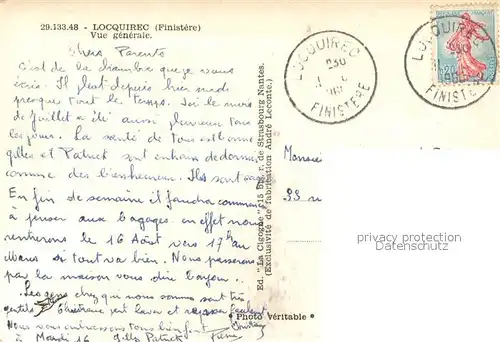 29.133.48 - LOCQUIREC (Finistère)
Vue générale.
Chers Parents
C'est de la chambre que je vous
écris. Il pleut depuis hier midi
presque tout le temps. Ici le mois
de Juillet a été aussi pluvieux tous
les jours. La santé de tous est bonne
Gilles et Patrick sont en train de dormir
comme des bienheureux. Ils sont
En fin de semaine il faudra commencer
à penser aux bagages en effet nous
rentrerons le 16 Août vers 17h au
Mans si tout va bien. Nous passerons
par la maison vous dire bonjour.
Les gens chez qui nous sommes sont très
gentils
Nous vous embrassons tous bien fort
à Mardi 16 Gilles Patrick Pierre
Ed. "La Cigogne" 15 bis, r. de Strasbourg Nantes.
(Exclusivité de fabrication André Leconte.)
* Photo Véritable *
LOCQUIREC
FINISTERE
LOCQUIREC
FINISTE
privacy protection
Datenschutz